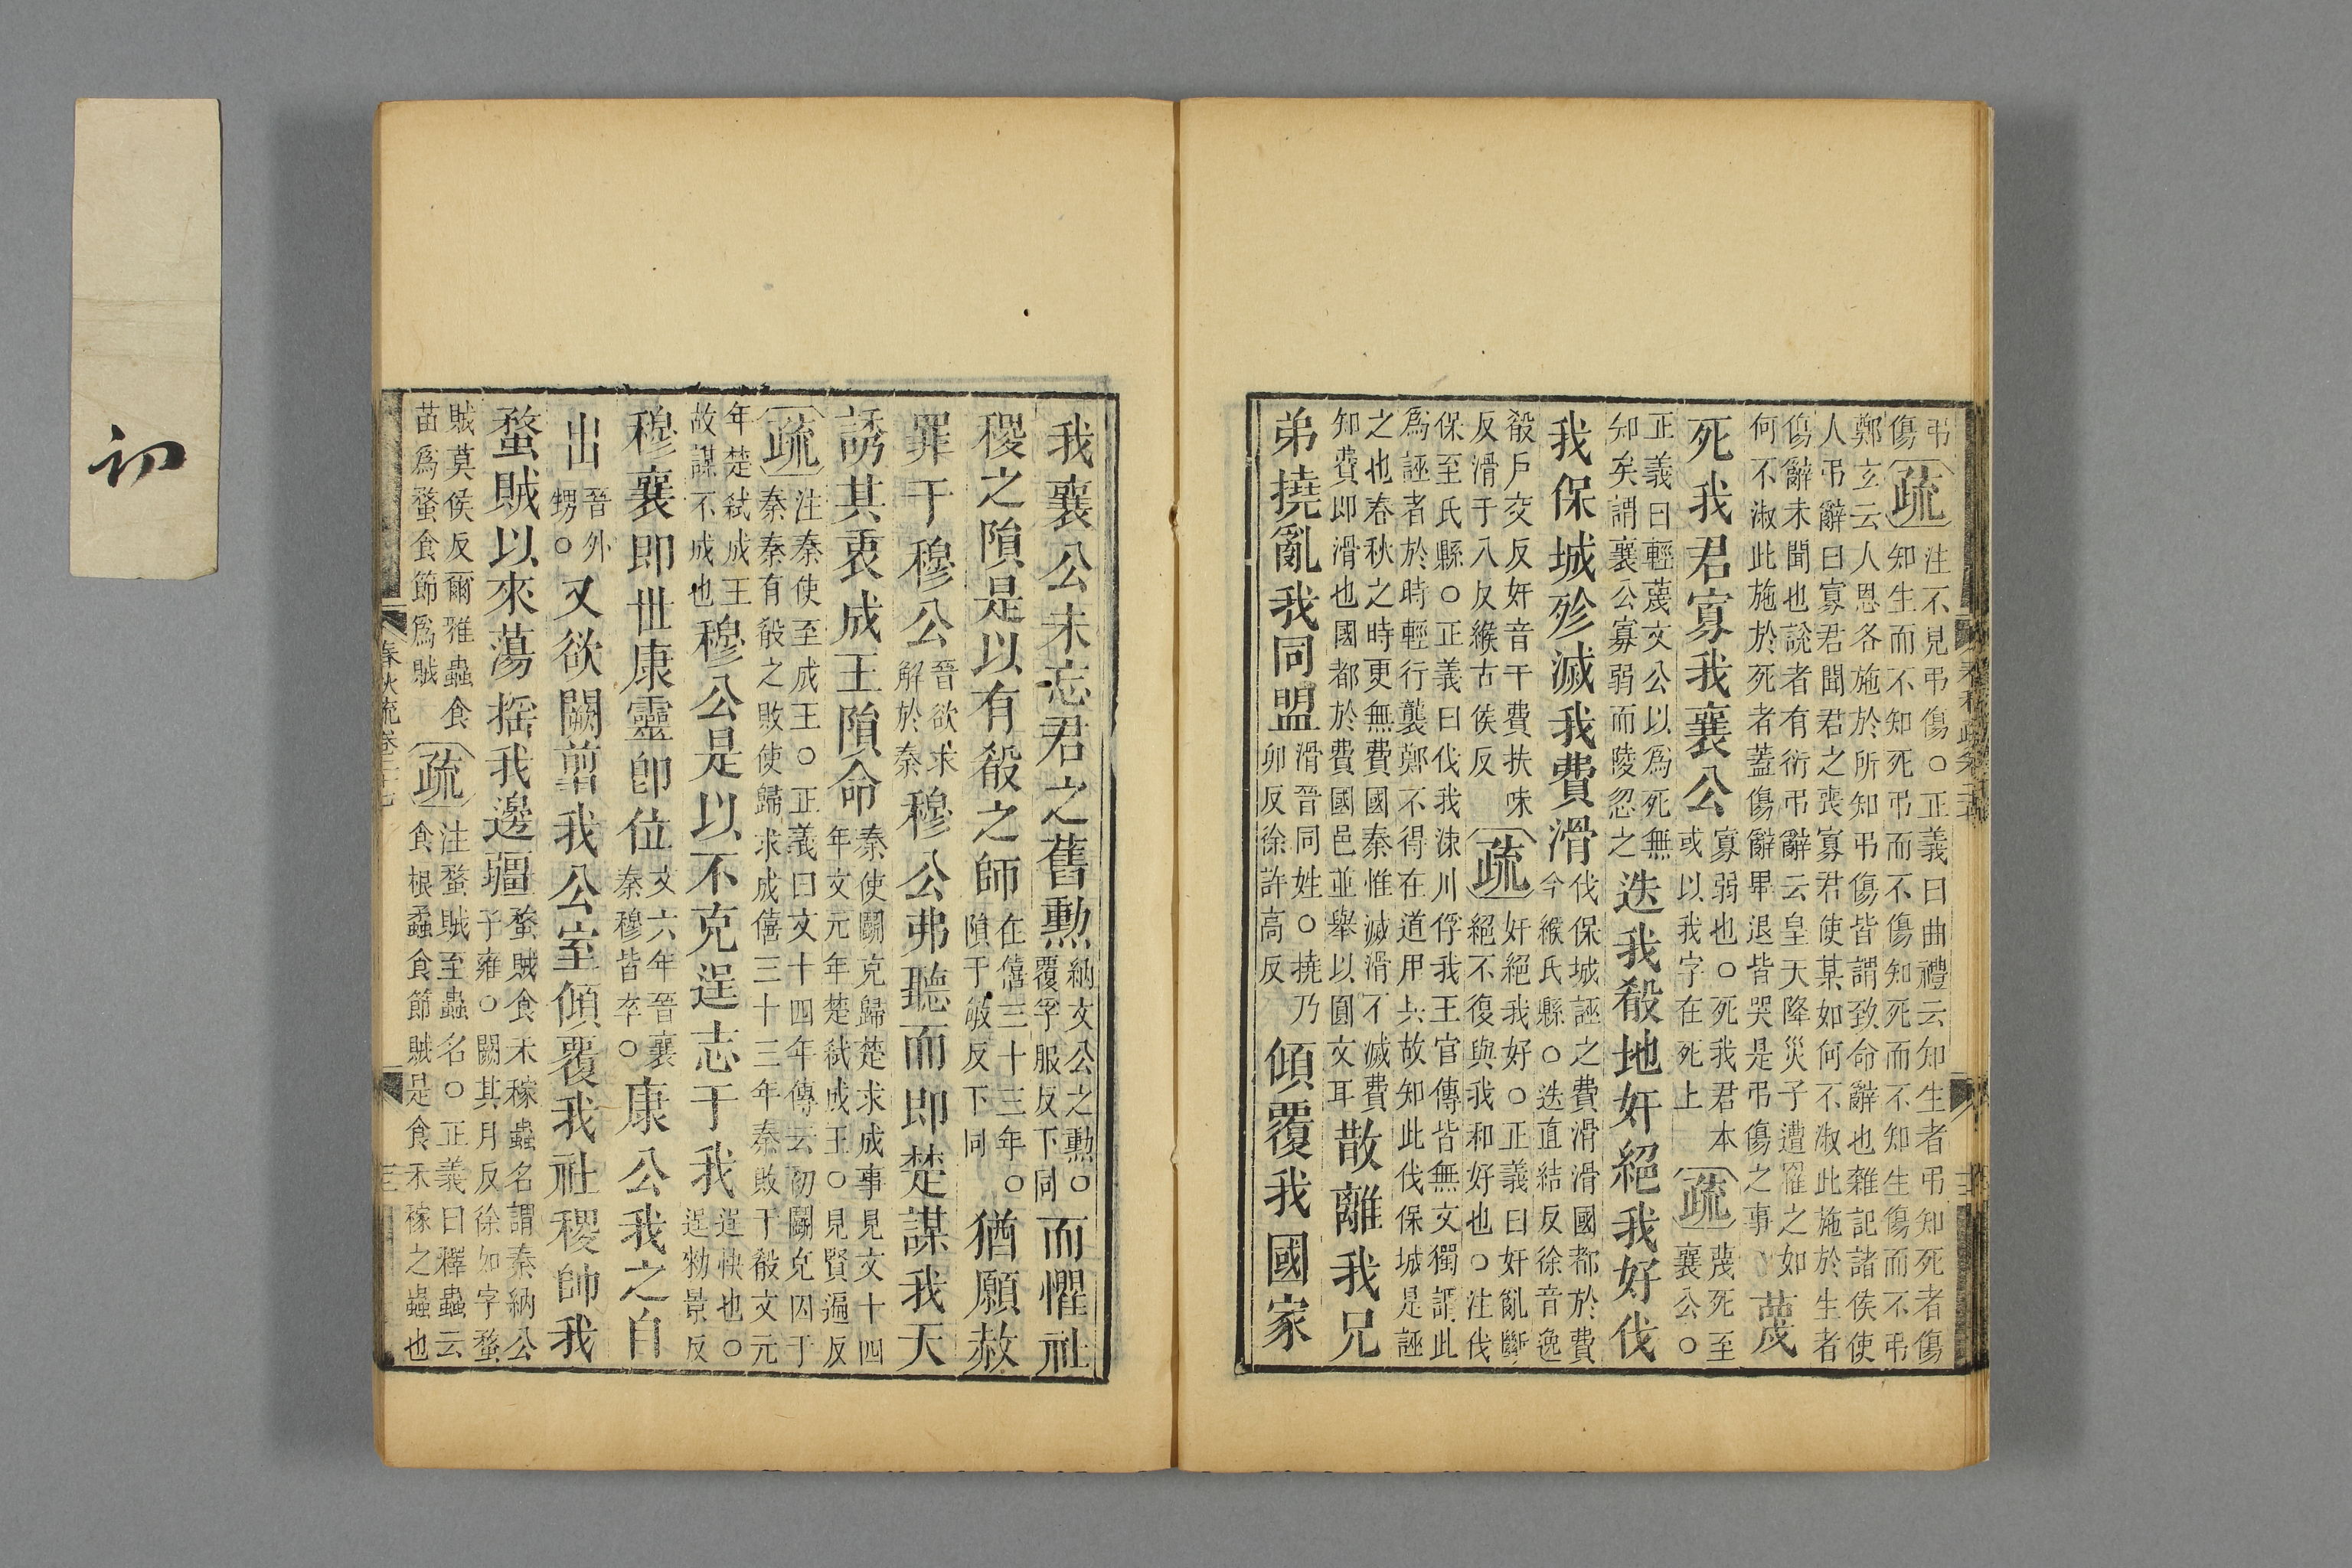 弔傷疏注不見弔傷○正義曰曲禮云知生者弔知死者傷知生而不知死弔而不傷知死而不知生傷而不弔
鄭玄云人恩各施於所知弔傷皆謂致命辭也雜記諸侯使
人弔辭曰寡君聞君之喪寡君使某如何不淑此施於生者
傷辭未聞也說者有衍弔辭云皇天降災子遭罹之如
何不淑此施於死者蓋傷辭畢退皆哭是弔傷之事○蔑
死我君寡我襄公寡弱也○死我君本或以我字在死上疏蔑死至襄公○
正義曰輕蔑文公以爲死無知矣謂襄公寡弱而陵忽之迭我殽地奸絕我好伐
我保城殄滅我費滑伐保城誣之費滑滑國都於費今緱氏縣○迭直結反徐音逸
殽戶交反奸音干費扶味反滑于八反緱古侯反疏奸絕我好○正義曰奸亂斷絕不復與我和好也○注伐
保至氏縣○正義曰伐我涑川俘我王官傳皆無文獨謂此
爲誣者於時輕行襲鄭不得在道用兵故知此伐保城是誣
之也春秋之時更無費國秦惟滅滑不滅費知費即滑也國都於費國邑並舉以圓文耳散離我兄
弟撓亂我同盟滑晉同姓○撓乃卯反徐許高反傾覆我國家
我襄公未忘君之舊勲納文公之勲○覆孚服反下同而懼社
稷之隕是以有殽之師在僖三十三年○隕于敏反下同猶願赦
罪于穆公晉欲求解於秦穆公弗聽而即楚謀我天
誘其衷成王隕命秦使鬬克歸楚求成事見文十四年文元年楚弑成王○見賢遍反
疏注秦使至成王○正義曰文十四年傳云初鬬克囚于秦秦有殽之敗使歸求成僖三十三年秦敗于殽文元
年楚弑成王故謀不成也穆公是以不克逞志于我逞快也○逞勑景反
穆襄即世康靈即位文六年晉襄秦穆皆卒○康公我之自
出晉外甥○又欲闕翦我公室傾覆我社稷帥我
蝥賊以來蕩搖我邊疆蝥賊食禾稼蟲名謂秦納公子雍○闕其月反徐如字蝥
賊莫侯反爾雅蟲食苗爲蝥食節爲賊疏注蝥賊至蟲名○正義曰釋蟲云食根蟊食節賊是食禾稼之蟲也
春秋疏卷二十七
三
初